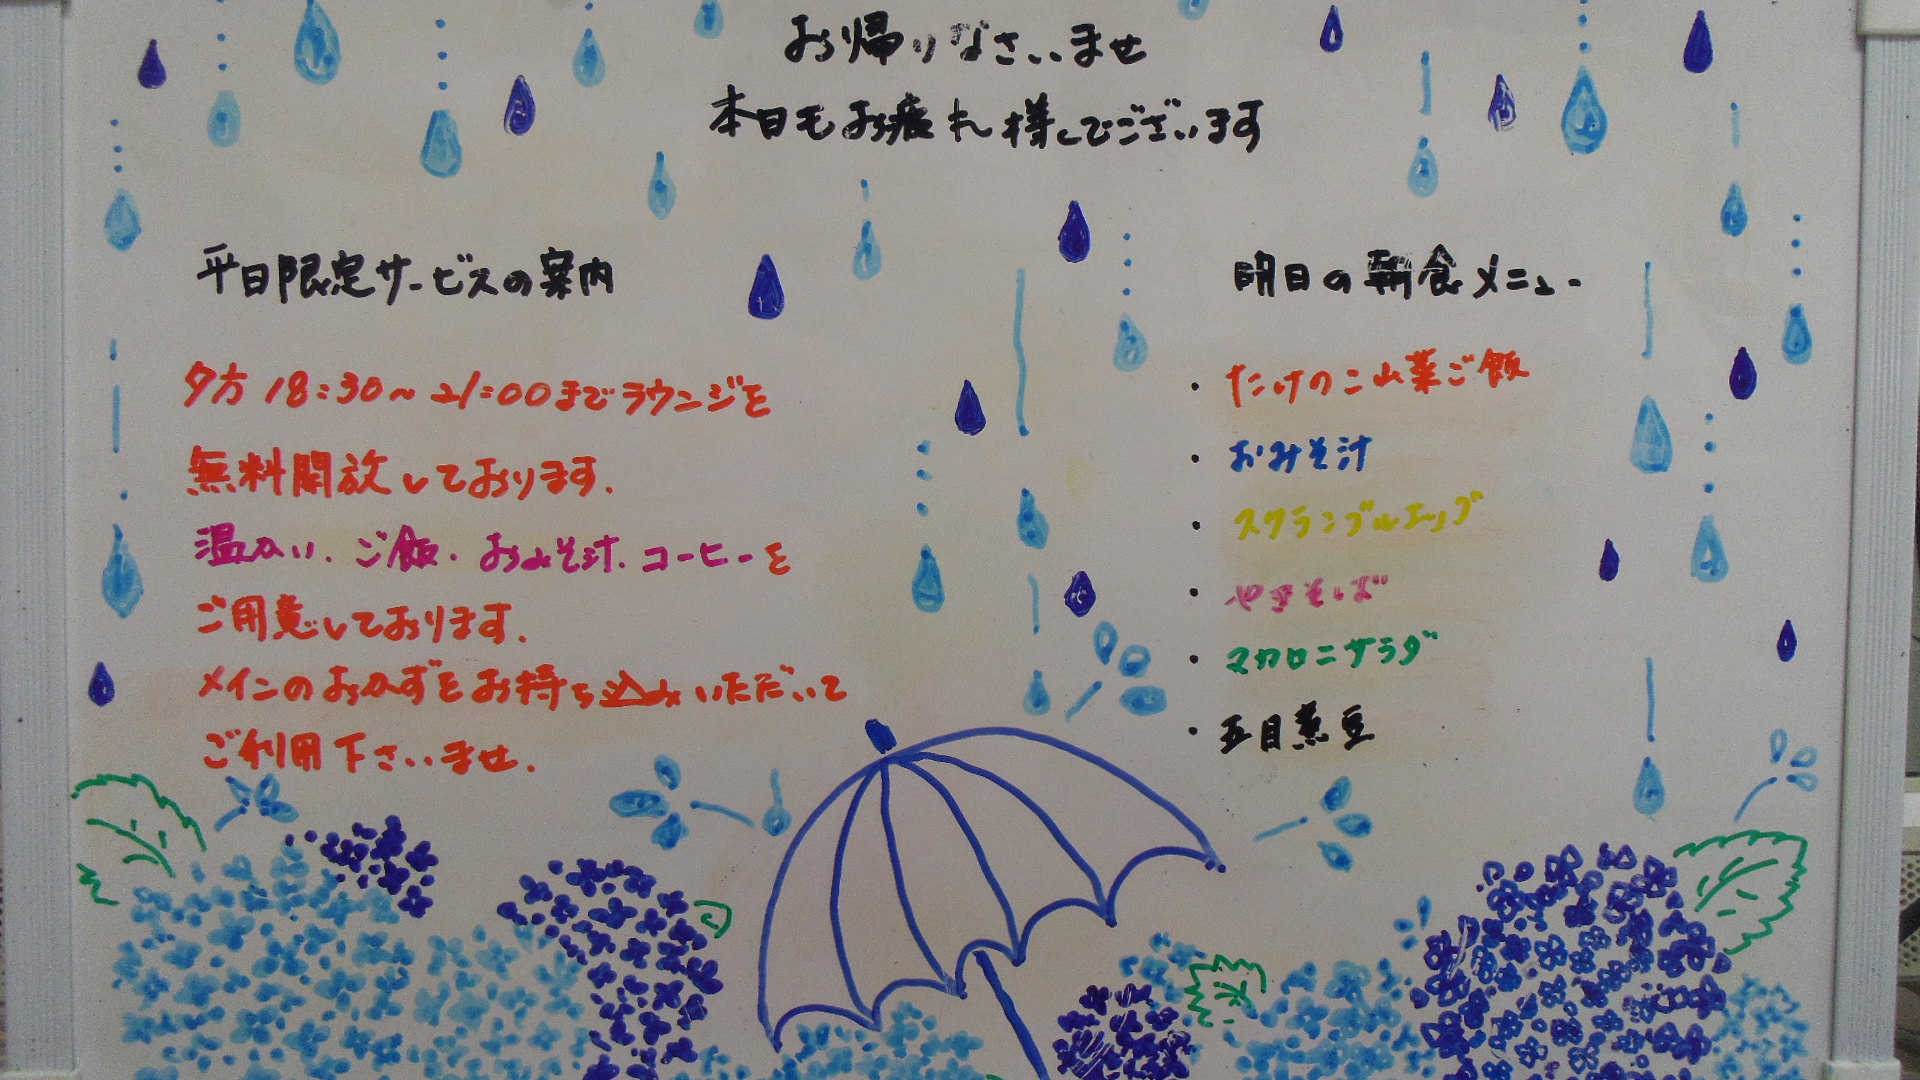 お帰りなさいませ
本日もお疲れ様でございます
平日限定サービスの案内
夕方18:30～21:00までラウンジを
無料開放しております.
温かい.ご飯.おみそ汁.コーヒーを
ご用意しております.
メインのおかずをお持ち込みいただいて
ご利用下さいませ.
明日の朝食メニュー
・たけのこ山菜ご飯
・おみそ汁
・スクランブルエッグ
・やきそば
・マカロニサラダ
・五目煮豆